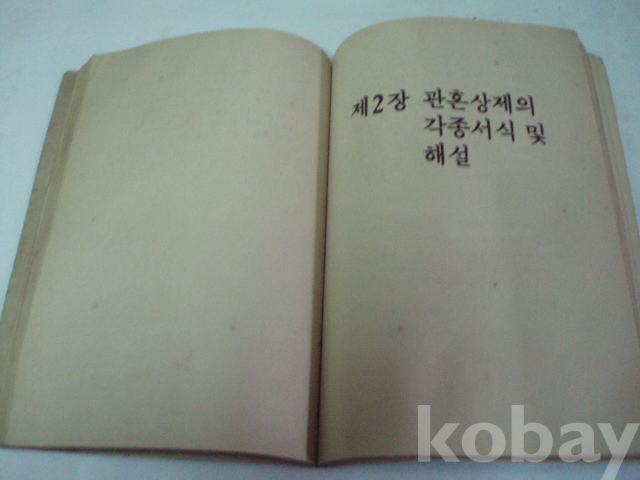 제2장 관혼상제의
각종서식 및
해설
kobay